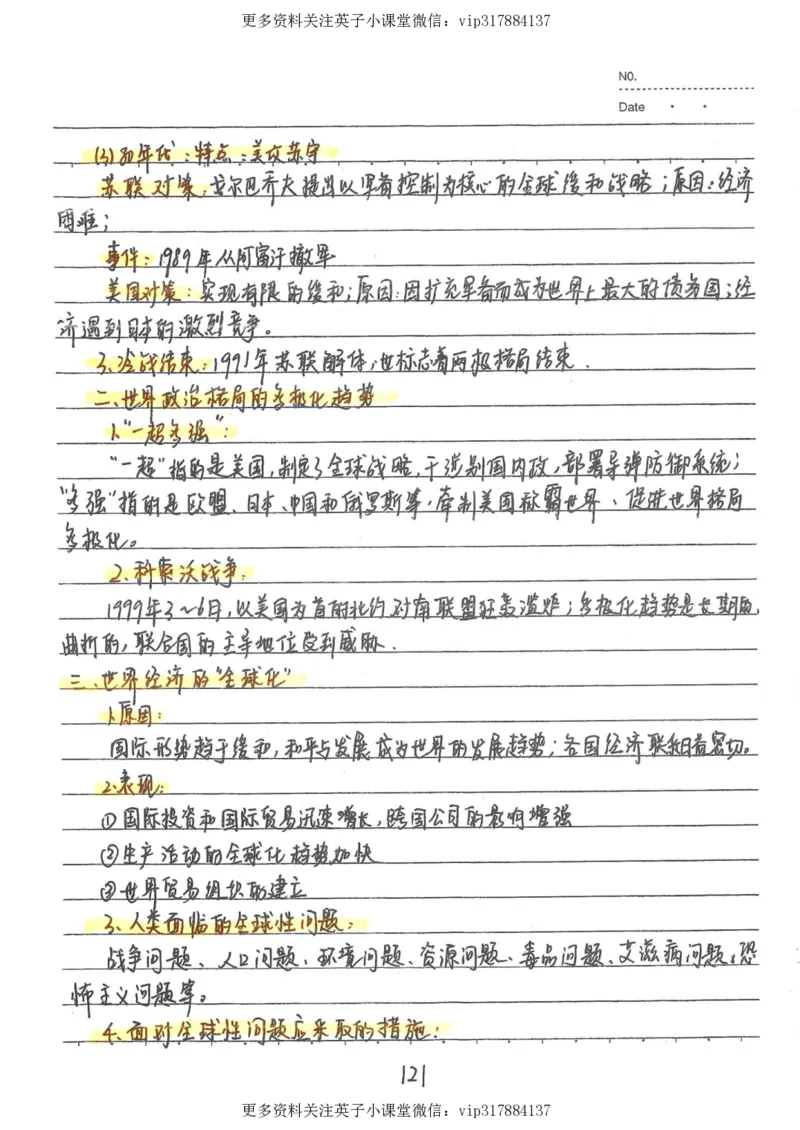 更多资料关注英子小课堂微信：vip317884137
NO.
Date
(3)80年代：特点：美攻苏守
苏联对策：戈尔巴乔夫提出以军备控制为核心的全球缓和战略；原因：经济
困难；
事件：1989年从阿富汗撤军
美国对策：实现有限的缓和；原因：因扩充军备而成为世界上最大的债务国；经
济遇到日本的激烈竞争。
3、冷战结束：1991年苏联解体，也标志着两极格局结束．
二、世界政治格局的多极化趋势
1、"一超多强"：
"一超"指的是美国，制定了全球战略，干涉别国内政，部署导弹防御系统；
"多强"指的是欧盟、日本、中国和俄罗斯等，牵制美国称霸世界、促进世界格局
多极化。
2、科索沃战争：
1999年3~6月，以美国为首的北约对南联盟狂轰滥炸；多极化趋势是长期的，
曲折的，联合国的主导地位受到威胁．
三、世界经济的"全球化"
1、原因：
国际形势趋于缓和，和平与发展成为世界的发展趋势；各国经济联系日益密切。
2、表现：
①国际投资和国际贸易迅速增长，跨国公司的影响增强
②生产活动的全球化趋势加快
③世界贸易组织的建立
3、人类面临的全球性问题：
战争问题、人口问题、环境问题、资源问题、毒品问题、艾滋病问题、恐
怖主义问题等。
4、面对全球性问题应采取的措施：
121
更多资料关注英子小课堂微信：vip317884137